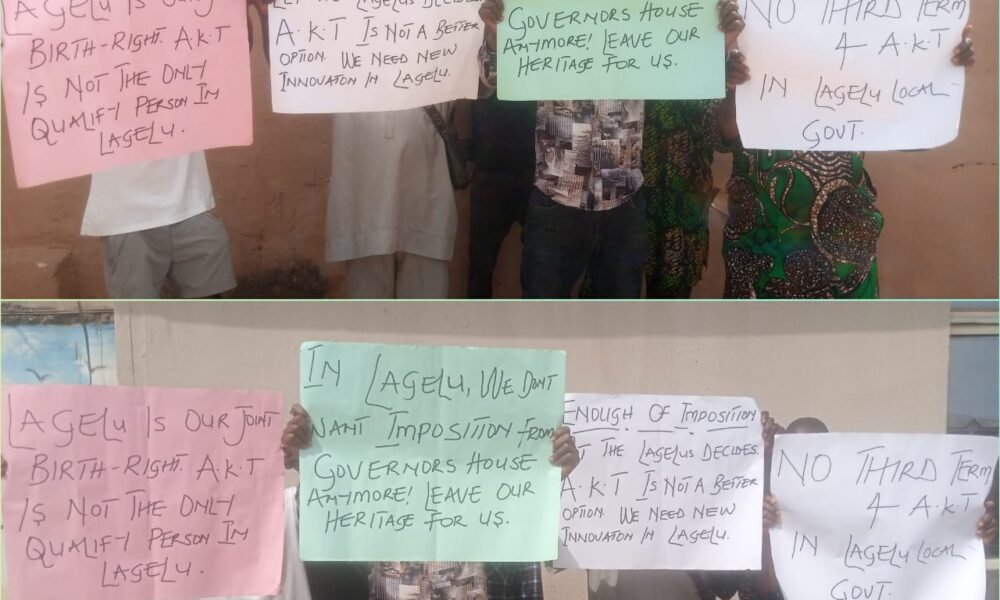 LAGELU IS OUR
BIRTH-RIGHT. A.K.T
IS NOT THE ONLY
QUALIFY PERSON IN
LAGELU.
LET THE LAGELUS DECIDES
A.K.T IS NOT A BETTER
OPTION. WE NEED NEW
INNOVATON IN LAGELU.
GOVERNORS HOUSE
ANYMORE! LEAVE OUR
HERITAGE FOR US.
NO THIRD TERM
4 A.K.T
IN LAGELU LOCAL
GOVT.
LAGELU IS OUR JOINT
BIRTH-RIGHT. A.K.T
IS NOT THE ONLY
QUALIFY PERSON IN
LAGELU.
IN LAGELU, WE DONT
WANT IMPOSITION FROM
GOVERNORS HOUSE
ANYMORE! LEAVE OUR
HERITAGE FOR US.
ENOUGH OF IMPOSITION
THE LAGELUS DECIDES.
A.K.T IS NOT A BETTER
OPTION. WE NEED NEW
INNOVATON IN LAGELU.
NO THIRD TERM
4 A.K.T
IN LAGELU LOCAL-
GOVT.